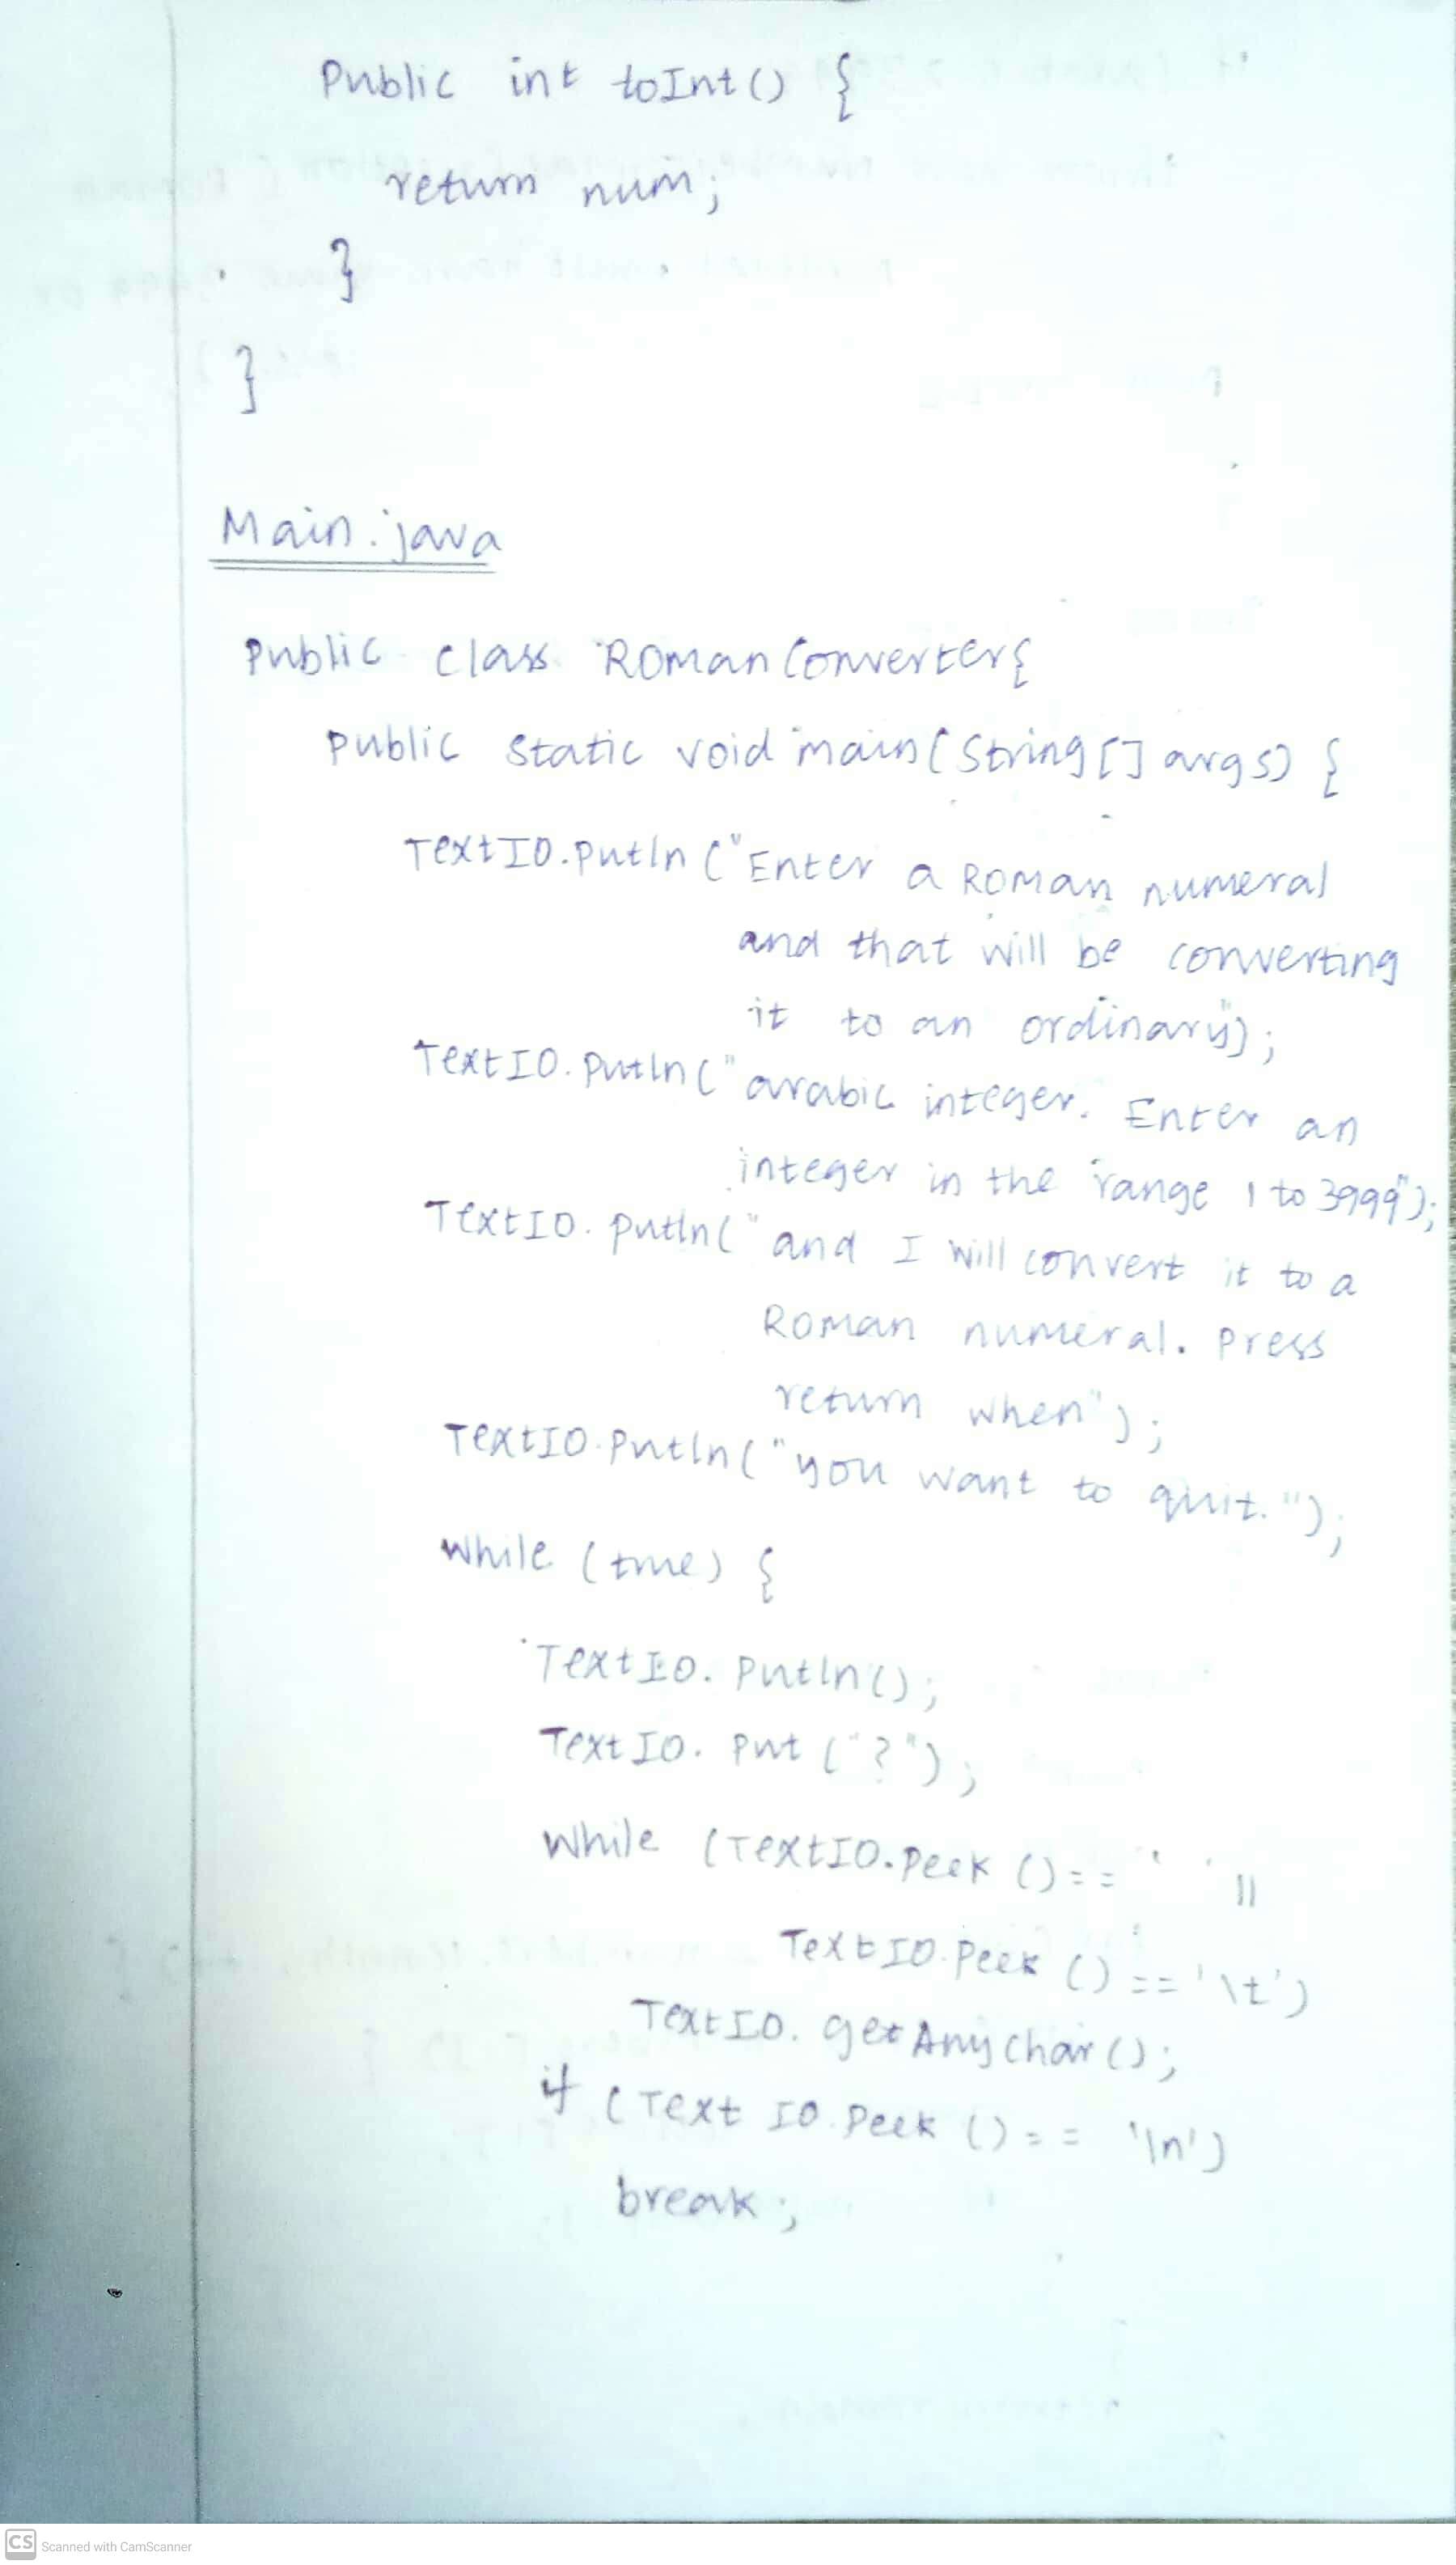 Public int toInt() {
return num;
}
}
Main.java
Public class RomanConverter{
public static void main(String[] args) {
TextIO.putln("Enter a Roman numeral
and that will be converting
it to an ordinary");
TextIO.putln("arabic integer. Enter an
integer in the range 1 to 3999");
TextIO.putln("and I will convert it to a
Roman numeral. Press
return when");
TextIO.putln("you want to quit.");
while (true) {
TextIO.putln();
TextIO.put("?");
while (TextIO.peek()==' ' ||
TextIO.peek()=='\t')
TextIO.getAnyChar();
if (TextIO.peek()== '\n')
break;
CS Scanned with CamScanner